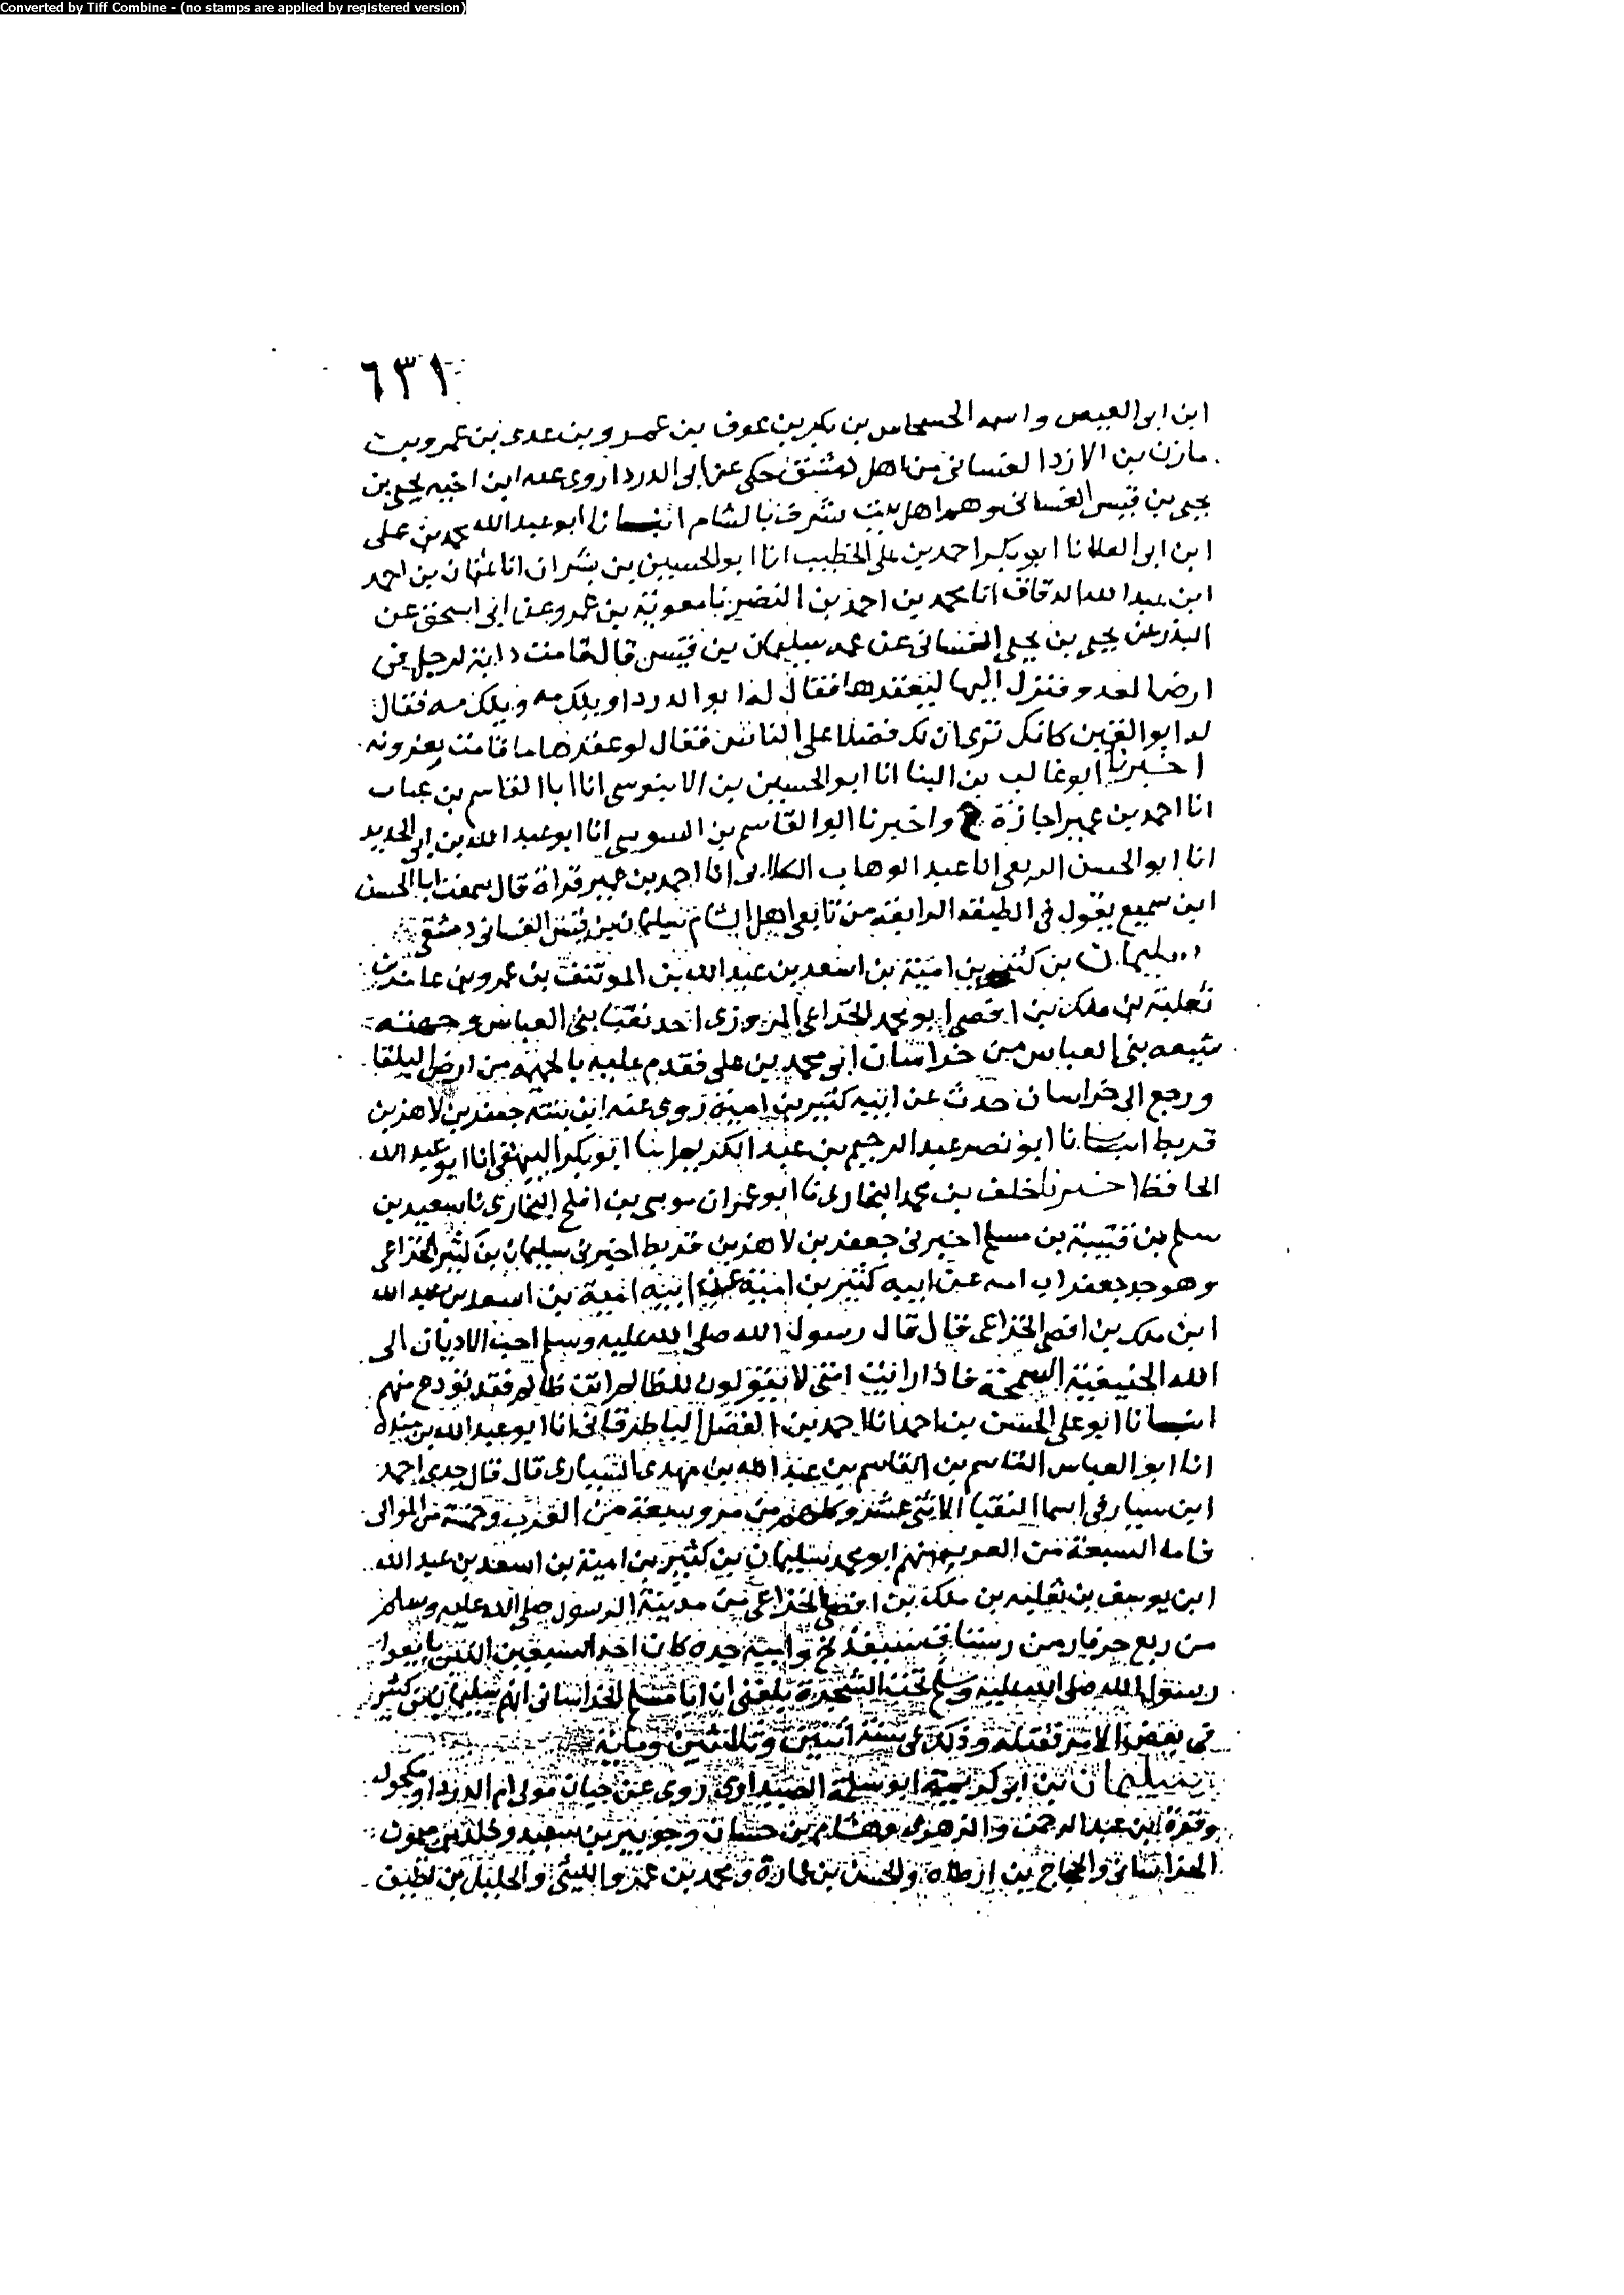 Converted by Tiff Combine - (no stamps are applied by registered version)
٦٣١
ابن ابى العبيص واسمه الحسحاس بن بكير بن عوف بن عمرو بن عدى بن عمرو بن
مازن بن الازد الغسانى من اهل دمشق حكى عن ابى الدرداء روى عنه ابن اخيه يحيى بن
يحيى بن قيس الغسانى وهم اهل بيت شرف بالشام انبسانا ابو عبد الله محمد بن على
ابن ابى العلا نا ابو بكر احمد بن على الخطيب انا ابو الحسين بن بشران انا عثمان بن احمد
ابن عبد الله الدقاق انا محمد بن احمد بن النضر نا معوية بن عمرو عن ابى اسحق عن
يحيى بن يحيى الغسانى عن عمه سليمان بن قيس قال قامت دابة لرجل فى
ارض العدو فنزل اليها ليعقرها فقال له ابو الدرداء ويلك مه ويلك مه فقال
له ابو كانك ترى ان لك فضلا على الناس فقال لو عقرها ما قامت يعنرونه
اخبرنا ابو غالب بن البنا انا ابو الحسين بن الابنوسى انا ابا القاسم بن عتاب
انا احمد بن عمير اجازة ح واخبرنا ابو القاسم بن السوسى انا ابو عبد الله بن ابى الحديد
انا ابو الحسن الربعى انا عبد الوهاب الكلابى انا احمد بن عمير قراة قال سمعت ابا الحسن
ابن سميع يقول فى الطبقة الرابعة من تابعى اهل الشام سليمان بن قيس الغسانى دمشقى
سليمان بن كثير بن امية بن اسعد بن عبد الله بن الموتنف بن عمرو بن عامر بن
ثعلبة بن ملك بن افصى ابو محمد الخزاعى المروزى احد نقبا بنى العباس وجهته
شيعه بنى العباس من خراسان الى محمد بن على فقدم عليه بالحميمة من ارض البلقا
ورجع الى خراسان حدث عن ابيه كثير بن امية روى عنه ابن بنته جعفر بن لاهز بن
قريط انبسانا ابو نصر عبد الرحيم بن عبد الكريم انا ابو بكر البيهقى انا ابو عبد الله
الحافظ اخبرنا خلف بن محمد البخارى نا ابو عمران موسى بن افلح البخارى نا سعيد بن
سلم بن قتيبة بن مسلم اخبرنى جعفر بن لاهز بن قريط اخبرنى سليمان بن كثير الخزاعى
وهو جد جعفر اب امه عن ابيه كثير بن امية عن ابيه امية بن اسعد بن عبد الله
ابن ملك بن افصى الخزاعى قال قال رسول الله صلى الله عليه وسلم احب الاديان الى
الله الحنيفية السمحة فاذا رايت امتى لا يقولون للظالم انت ظالم فقد تودع منهم
انبسانا ابو على الحسن بن احمد انا احمد بن الفضل الباطرقانى انا ابو عبد الله بن منده
انا ابو العباس القاسم بن القاسم بن عبد الله بن مهدى السيارى قال قال جدى احمد
ابن سيار فى اسما النقبا الاثنى عشر وكلهم من مرو سبعة من العرب وخمسة من الموالى
فاما السبعة من العرب فمنهم ابو محمد سليمان بن كثير بن امية بن اسعد بن عبد الله
ابن يوسف بن ثعلبه بن ملك بن افصى الخزاعى من مدينة الرسول صلى الله عليه وسلم
من ربع من رستاق وابيه جده كان احد السبعين الذين بايعوا
رسول الله صلى الله عليه وسلم تحت الشجرة بلغنى ان ابا مسلم الخراسانى اتهم سليمان بن كثير
فى بعض الامر فقتله وذلك فى سنة اثنين وثلثين ومايه
سليمان بن ابى كريمة ابو سلمة الصيداوى روى عن حيان مولى ام الدرداء ومكحول
وقرة ابن عبد الرحمن والزهرى وهشام بن حسان وجويبر بن سعيد وخلد بن ميمون
الخراسانى والحجاج بن ارطاه والحسن بن عمارة ومحمد بن عمرو الليثى والخليل بن